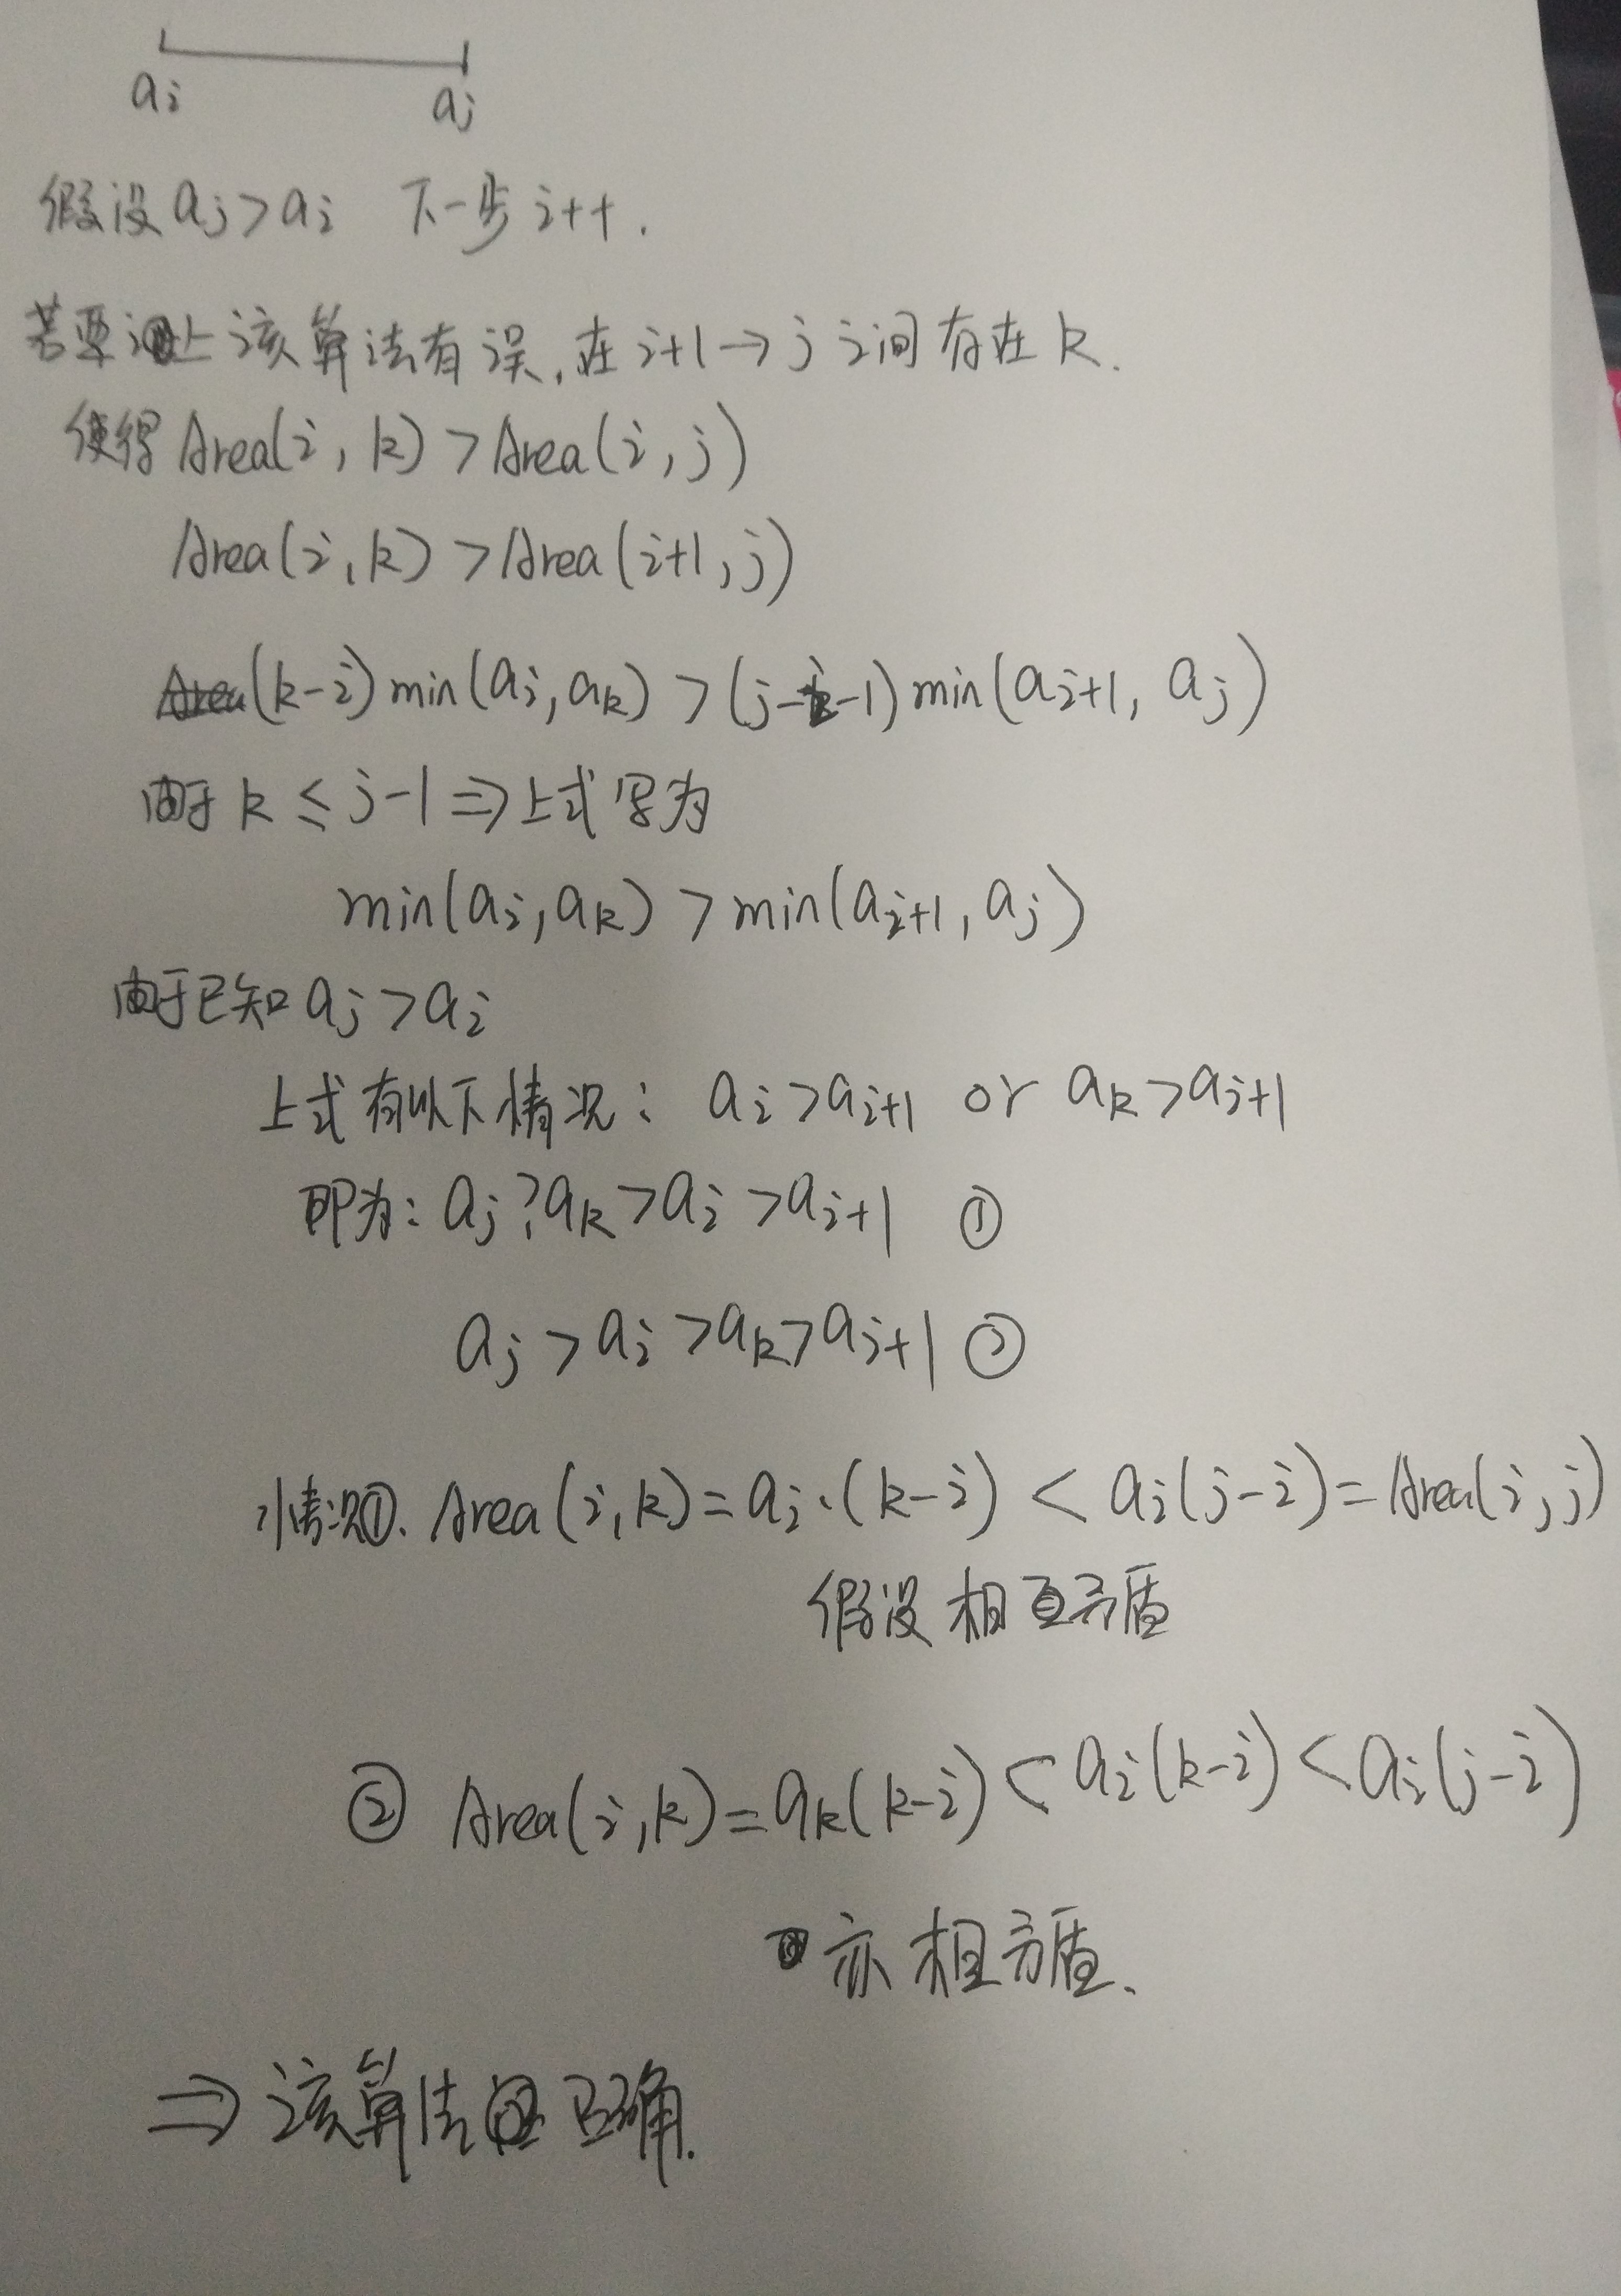 ai aj
假设 aj > ai 下一步 i++.
若要让该算法有误,在 i+1 → j 之间存在 k.
使得 Area(i, k) > Area(i, j)
Area(i, k) > Area(i+1, j)
(k-i) min(ai, ak) > (j-i-1) min(ai+1, aj)
由于 k ≤ j-1 ⇒ 上式写为
min(ai, ak) > min(ai+1, aj)
由于已知 aj > ai
上式有以下情况: ai > ai+1 or ak > ai+1
即为: aj ? ak > ai > ai+1 ①
aj > ai > ak > ai+1 ②
情况①. Area(i, k) = ai·(k-i) < ai(j-i) = Area(i, j)
假设相互矛盾
② Area(i, k) = ak(k-i) < ai(k-i) < ai(j-i)
亦相矛盾.
⇒ 该算法正确.